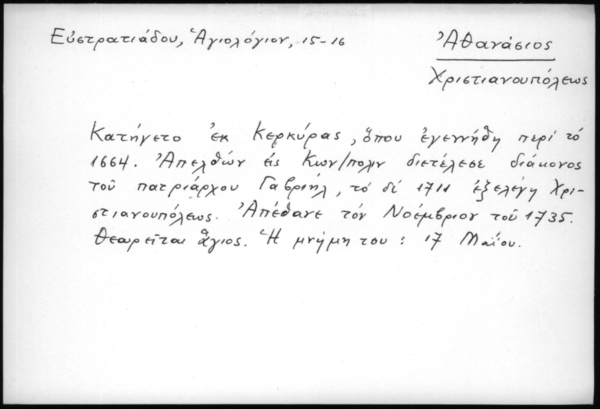 Εὐστρατιάδου, Ἁγιολόγιον, 15-16
Ἀθανάσιος
Χριστιανουπόλεως
Κατήγετο ἐκ Κερκύρας, ὅπου ἐγεννήθη περί τό
1664. Ἀπελθών εἰς Κων/πολιν διετέλεσε διάκονος
τοῦ πατριάρχου Γαβριήλ, τό δέ 1711 ἐξελέγη Χρι-
στιανουπόλεως. Ἀπέθανε τόν Νοέμβριον τοῦ 1735.
Θεωρεῖται ἅγιος. Ἡ μνήμη του: 17 Μαΐου.